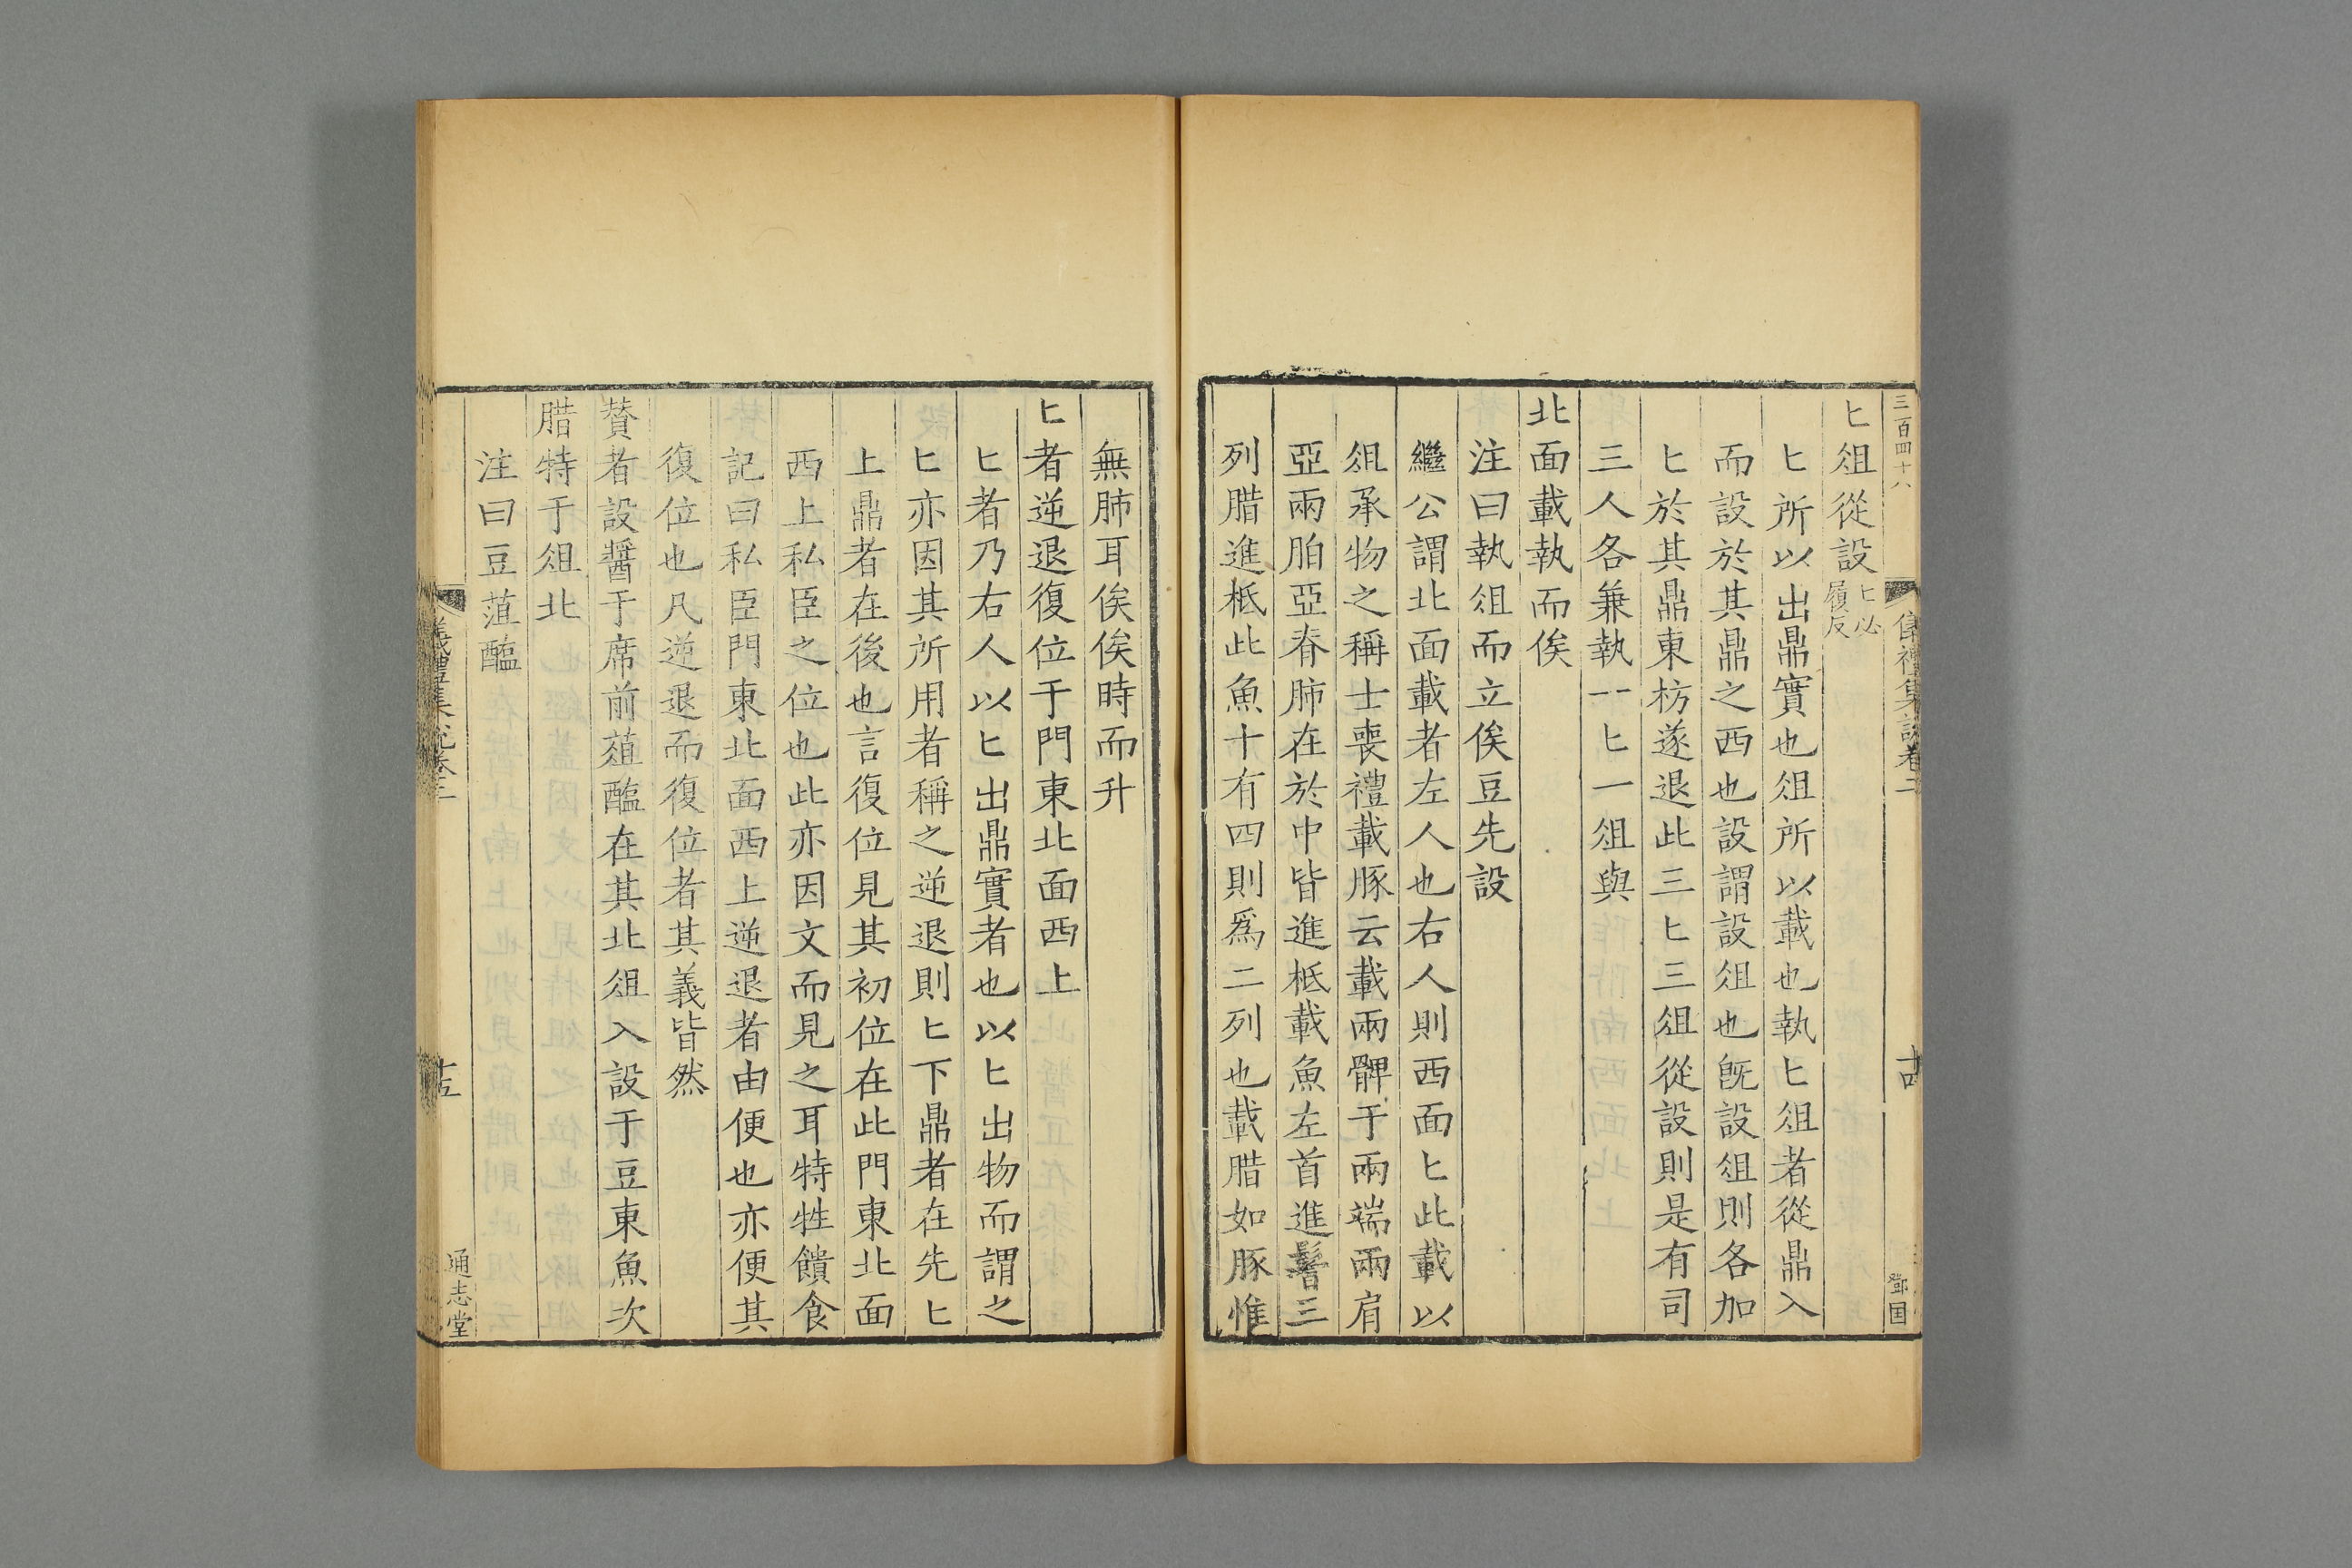 三百四十八
儀禮集說卷二
十四
鄧国
匕俎從設匕必履反
匕所以出鼎實也俎所以載也執匕俎者從鼎入
而設於其鼎之西也設謂設俎也旣設俎則各加
匕於其鼎東枋遂退此三匕三俎從設則是有司
三人各兼執一匕一俎與
北面載執而俟
注曰執俎而立俟豆先設
繼公謂北面載者左人也右人則西面匕此載以
俎承物之稱士喪禮載豚云載兩髀于兩端兩肩
亞兩胉亞脊肺在於中皆進柢載魚左首進鬐三
列腊進柢此魚十有四則爲二列也載腊如豚惟
無肺耳俟俟時而升
匕者逆退復位于門東北面西上
匕者乃右人以匕出鼎實者也以匕出物而謂之
匕亦因其所用者稱之逆退則匕下鼎者在先匕
上鼎者在後也言復位見其初位在此門東北面
西上私臣之位也此亦因文而見之耳特牲饋食
記曰私臣門東北面西上逆退者由便也亦便其
復位也凡逆退而復位者其義皆然
贊者設醬于席前菹醢在其北俎入設于豆東魚次
腊特于俎北
注曰豆菹醢
儀禮集說卷二
十五
通志堂